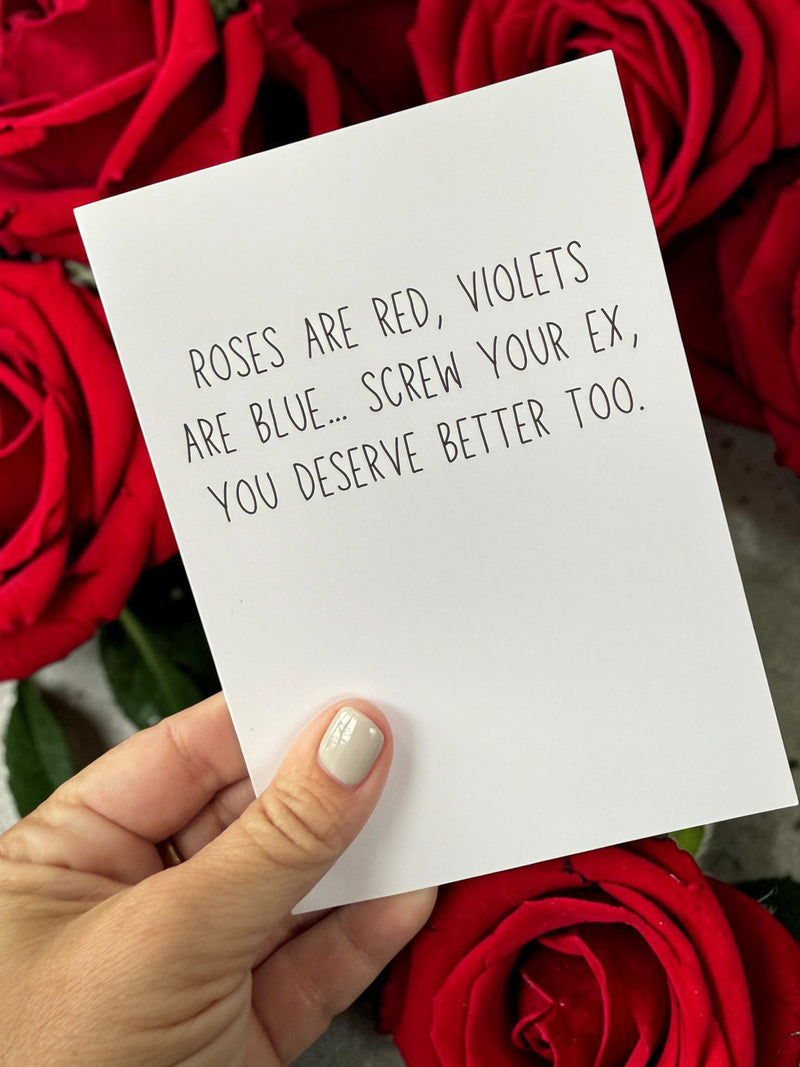 ROSES ARE RED, VIOLETS
ARE BLUE... SCREW YOUR EX,
YOU DESERVE BETTER TOO.